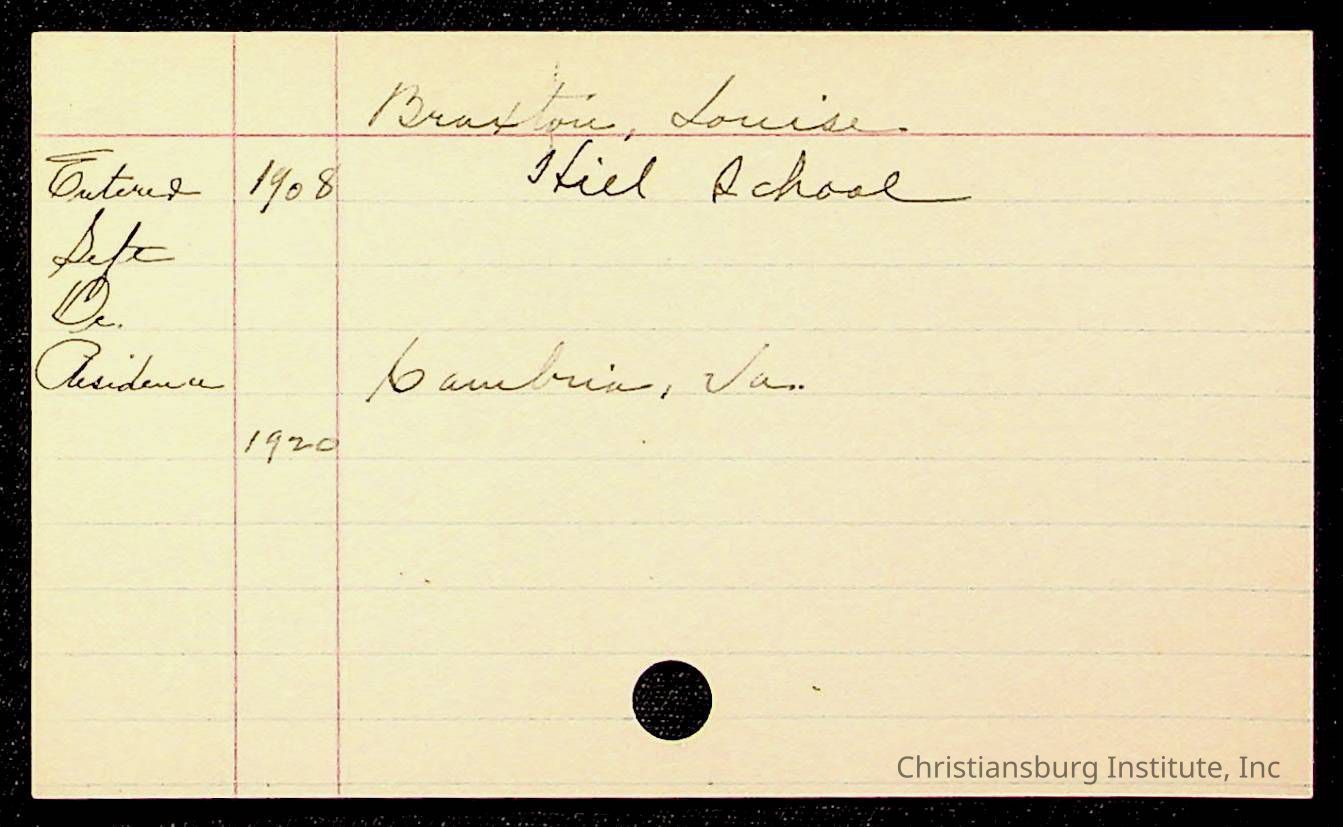 Braxton, Louise.
Entered 1908 Hill School
Left
De.
Residence Cambria, Va.
1920
Christiansburg Institute, Inc